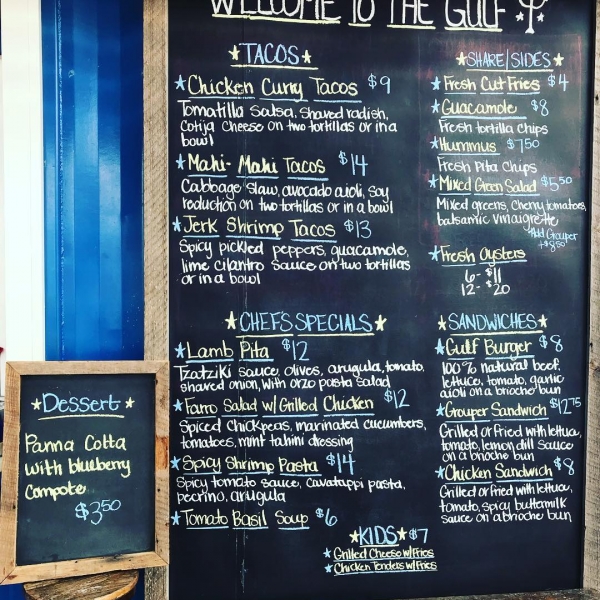 WELCOME TO THE GULF
TACOS
Chicken Curry Tacos $9
Tomatilla Salsa, shaved radish,
Cotija Cheese on two tortillas or in a
bowl
Mahi-Mahi Tacos $14
Cabbage Slaw, avocado aioli, soy
reduction on two tortillas or in a bowl
Jerk Shrimp Tacos $13
Spicy pickled peppers, guacamole,
lime cilantro sauce on two tortillas
or in a bowl
SHARE/SIDES
Fresh Cut Fries $4
Guacamole $8
Fresh tortilla chips
Hummus $7.50
Fresh Pita Chips
Mixed Green Salad $5.50
Mixed greens, cherry tomatoes,
balsamic vinaigrette
Add Grouper
+$8.50
Fresh Oysters
6- $11
12- $20
CHEF'S SPECIALS
Lamb Pita $12
Tzatziki sauce, olives, arugula, tomato,
shaved onion, with orzo pasta salad
Farro Salad w/ Grilled Chicken $12
Spiced chickpeas, marinated cucumbers,
tomatoes, mint tahini dressing
Spicy Shrimp Pasta $14
Spicy tomato sauce, cavatappi pasta,
pecorino, arugula
Tomato Basil Soup $6
SANDWICHES
Gulf Burger $8
100% natural beef,
lettuce, tomato, garlic
aioli on a brioche bun
Grouper Sandwich $12.75
Grilled or fried with lettuce,
tomato, lemon dill sauce
on a brioche bun
Chicken Sandwich $8
Grilled or fried with lettuce,
tomato, spicy buttermilk
sauce on a brioche bun
KIDS $7
Grilled Cheese w/ Fries
Chicken Tenders w/ Fries
Dessert
Panna Cotta
with blueberry
Compote
$3.50